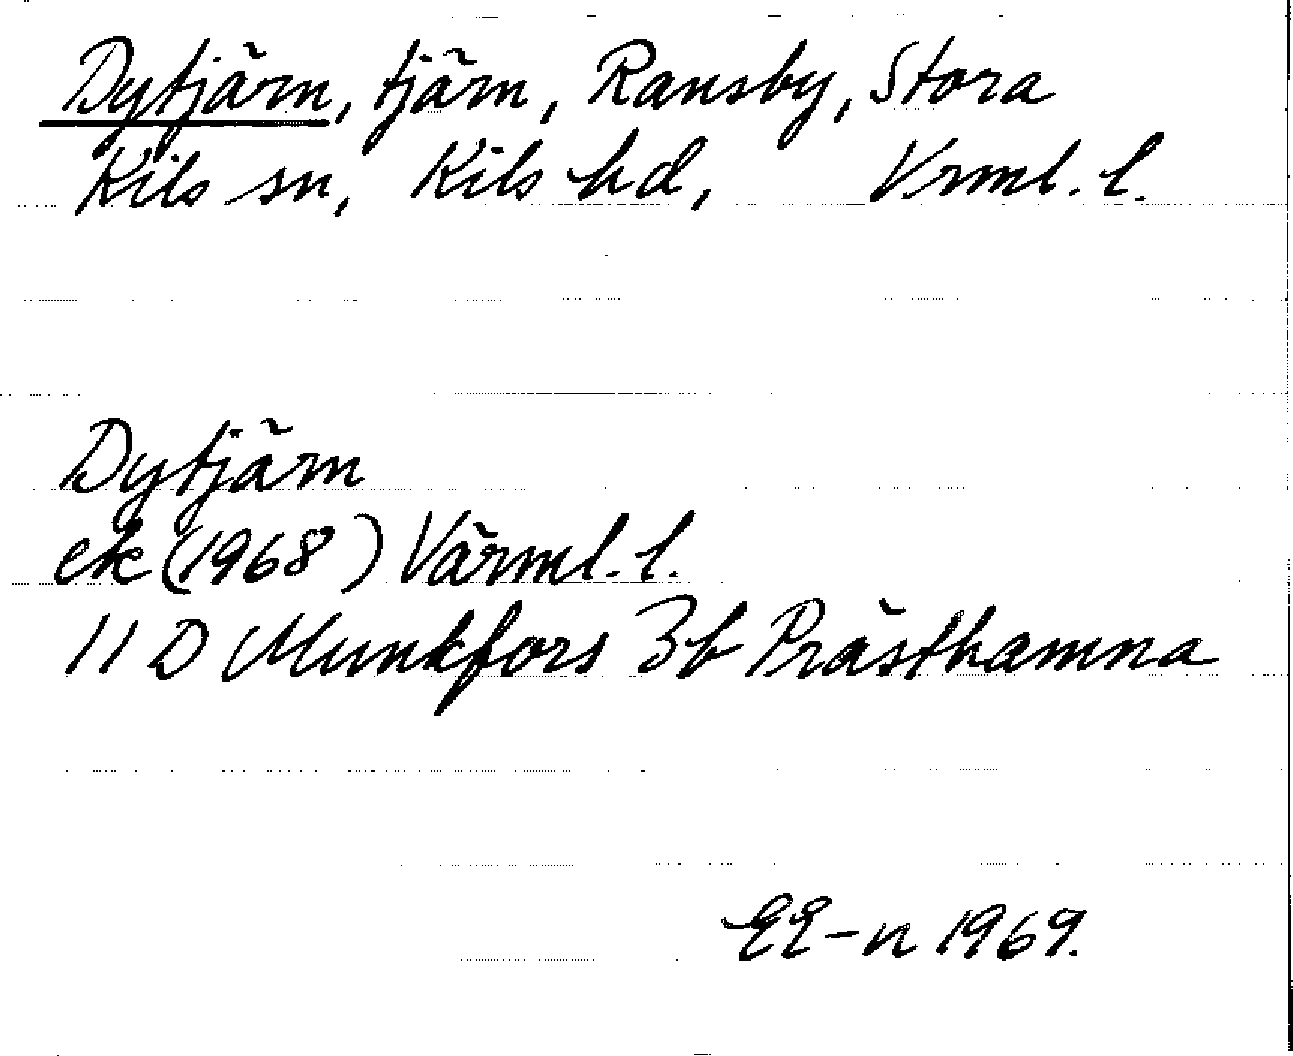 Dytjärn, tjärn, Ransby, Stora
Kils sn, Kils hd, Vrml. l.
Dytjärn
ek (1968) Värml. l.
11 D Munkfors 3b Prästhamna
EE-n 1969.